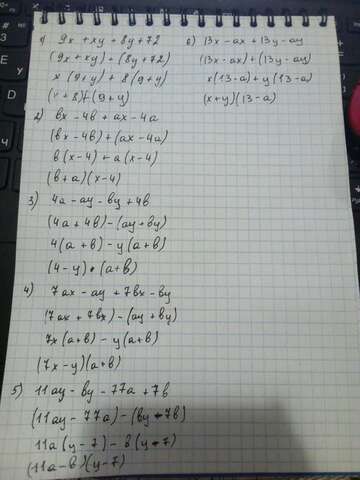 1) 9x + xy + 8y + 72
(9x + xy) + (8y + 72)
x (9 + y) + 8 (9 + y)
(x + 8) + (9 + y)
2) bx - 4b + ax - 4a
(bx - 4b) + (ax - 4a)
b (x - 4) + a (x - 4)
(b + a) (x - 4)
3) 4a - ay - by + 4b
(4a + 4b) - (ay + by)
4 (a + b) - y (a + b)
(4 - y) • (a + b)
4) 7ax - ay + 7bx - by
(7ax + 7bx) - (ay + by)
7x (a + b) - y (a + b)
(7x - y) (a + b)
5) 11ay - by - 77a + 7b
(11ay - 77a) - (by - 7b)
11a (y - 7) - b (y - 7)
(11a - b) (y - 7)
6) 13x - ax + 13y - ay
(13x - ax) + (13y - ay)
x (13 - a) + y (13 - a)
(x + y) (13 - a)